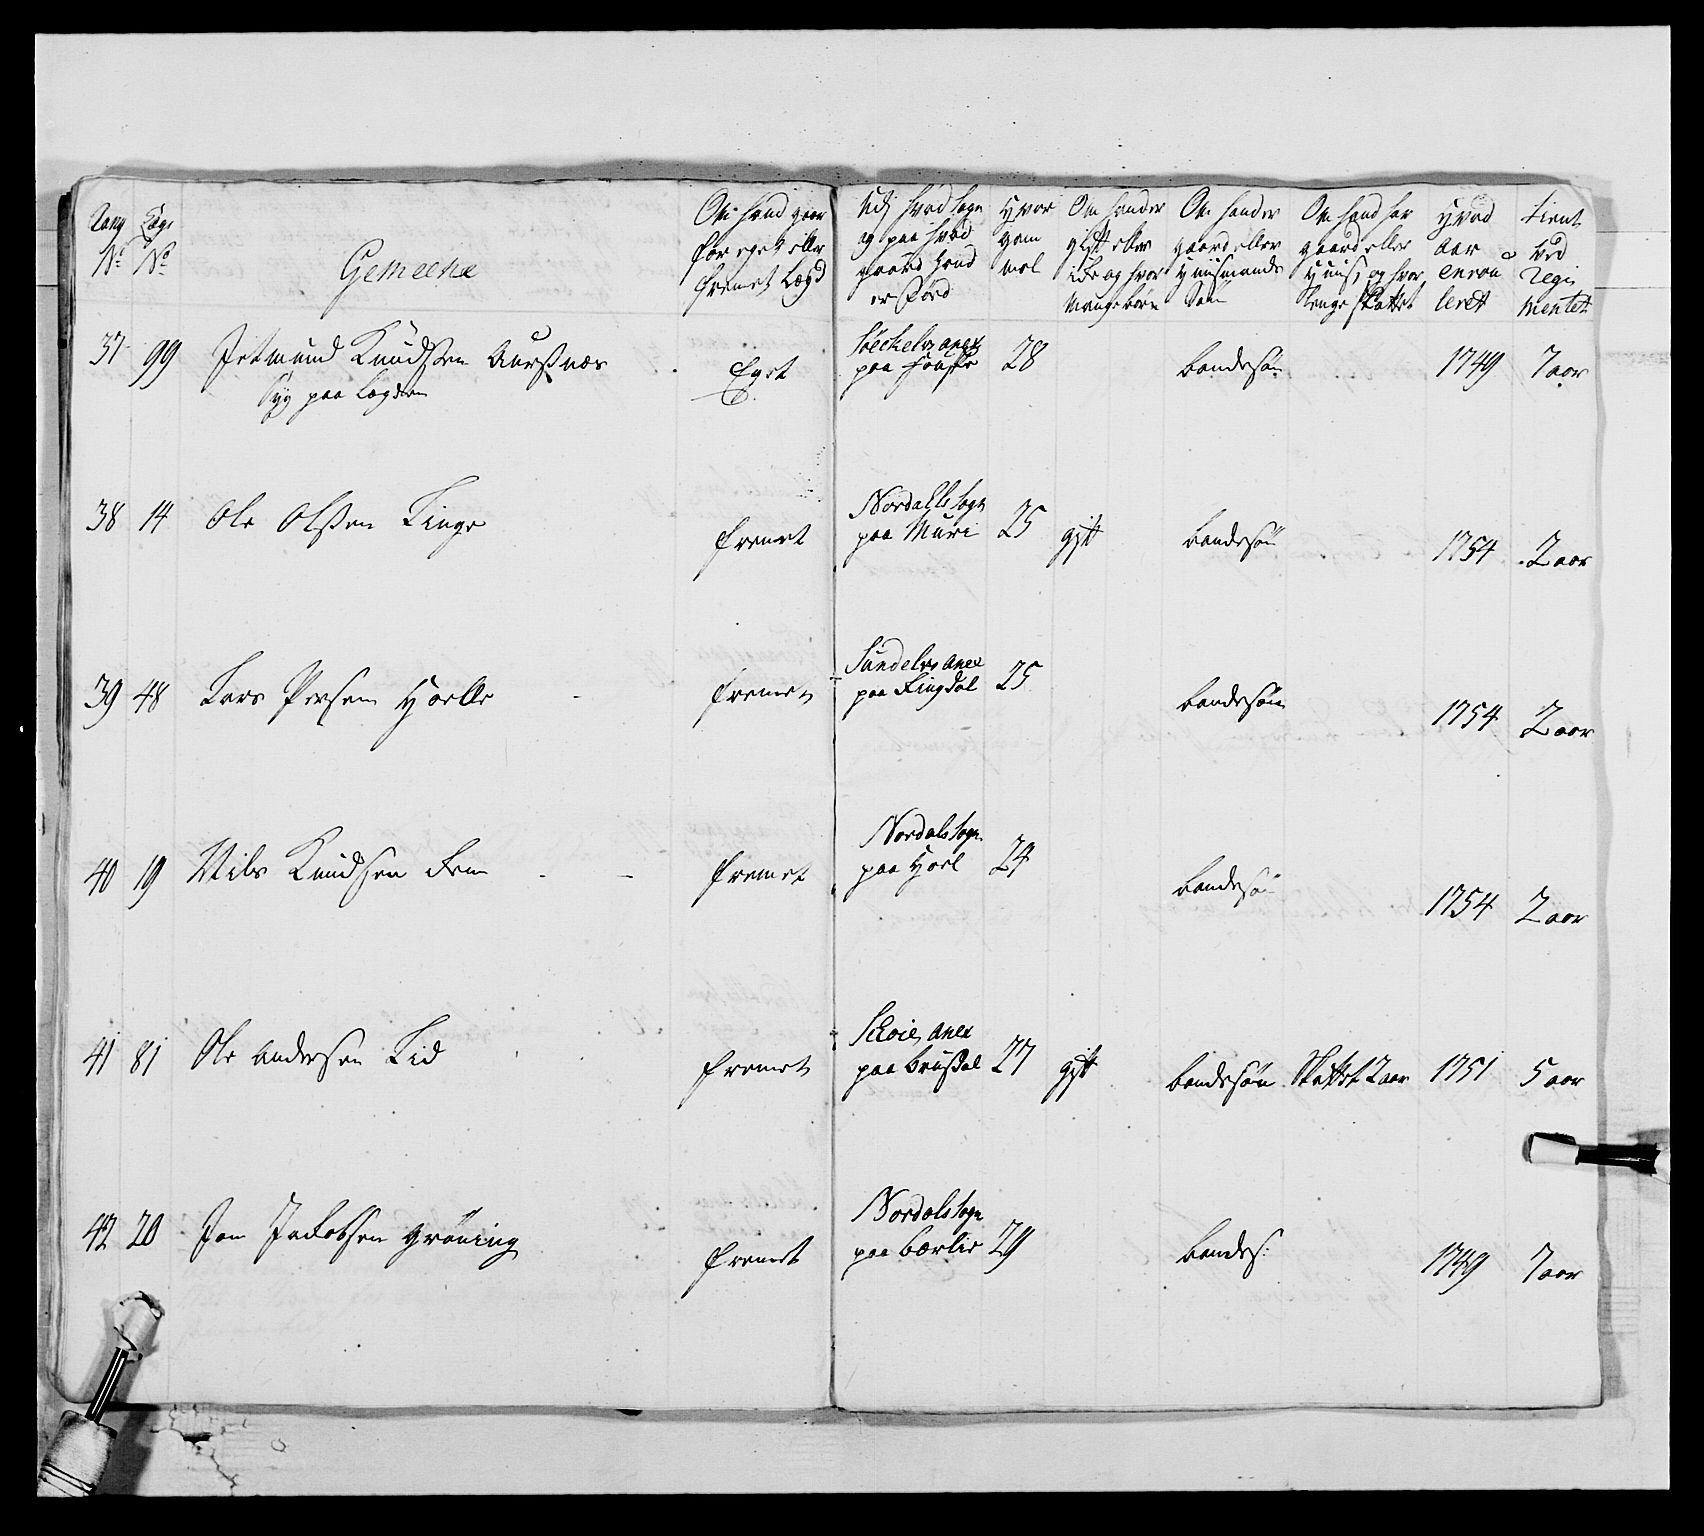 Rang No
Lægs No
Gemeene
Om hand gaar for eget eller fremet Lægd
Udj hvad sogn og paa hvad gaard hand er Fød
Hvor gam mel
Om hand er gift eller icke og hvor mange børn
Om hand er gaard eller Huusmands Søn
Om hand har gaard eller Huus, og hvor lenge skattet
Hvad aar enroulleret
tient ved Regi mentet
37 99 Jetmund Knudsen Aursnæs Eget
Syg paa Lægden
Søechels anex
paa 28 bondesøn 1749 7 aar
38 14 Ole Olsen Linge fremet
Nordahls sogn
paa Muri 25 gift bondesøn 1754 2 aar
39 48 Lars Persen Hoelle fremet
Sundels anex
paa Ringdal 25 bondesøn 1754 2 aar
40 19 Nils Knudsen Dem fremet
Nordals sogn
paa Hoel 24 bondesøn 1754 2 aar
41 81 Ole Andersen Lid fremet
Schoie anex
paa Brusdal 27 gift bondesøn Skattet 2 aar 1751 5 aar
42 20 Jon Jacobsen Grøning fremet
Nordals sogn
paa Bærlie 29 bondes: 1749 7 aar